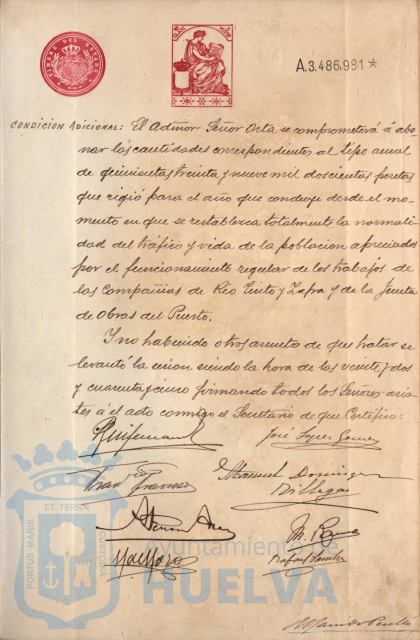 TIMBRE DEL ESTADO
A.3.486,981*
CONDICION ADICIONAL: El Admor Señor Orta se comprometerá á abo-
nar las cantidades correspondientes al tipo anual
de quinientas treinta y nueve mil doscientas pesetas
que rigió para el año que concluye desde el mo-
mento en que se restablezca totalmente la normali-
dad del tráfico y vida de la poblacion apreciados
por el funcionamiento regular de los trabajos de
las Compañias de Rio Tinto y Zafra y de la Junta
de Obras del Puerto.
Y no habiendo otros asuntos de que tratar se
levantó la sesion siendo la hora de las veinte y dos
y cuarenta y cinco firmando todos los Señores asis-
tes á el acto conmigo el Secretario de que Certifico:
José Lopez Gomez
Manuel Dominguez
Villegas
Rafael
PORTUS MARIS
ET TERRE
CUSTODIA
Ayuntamiento de
HUELVA